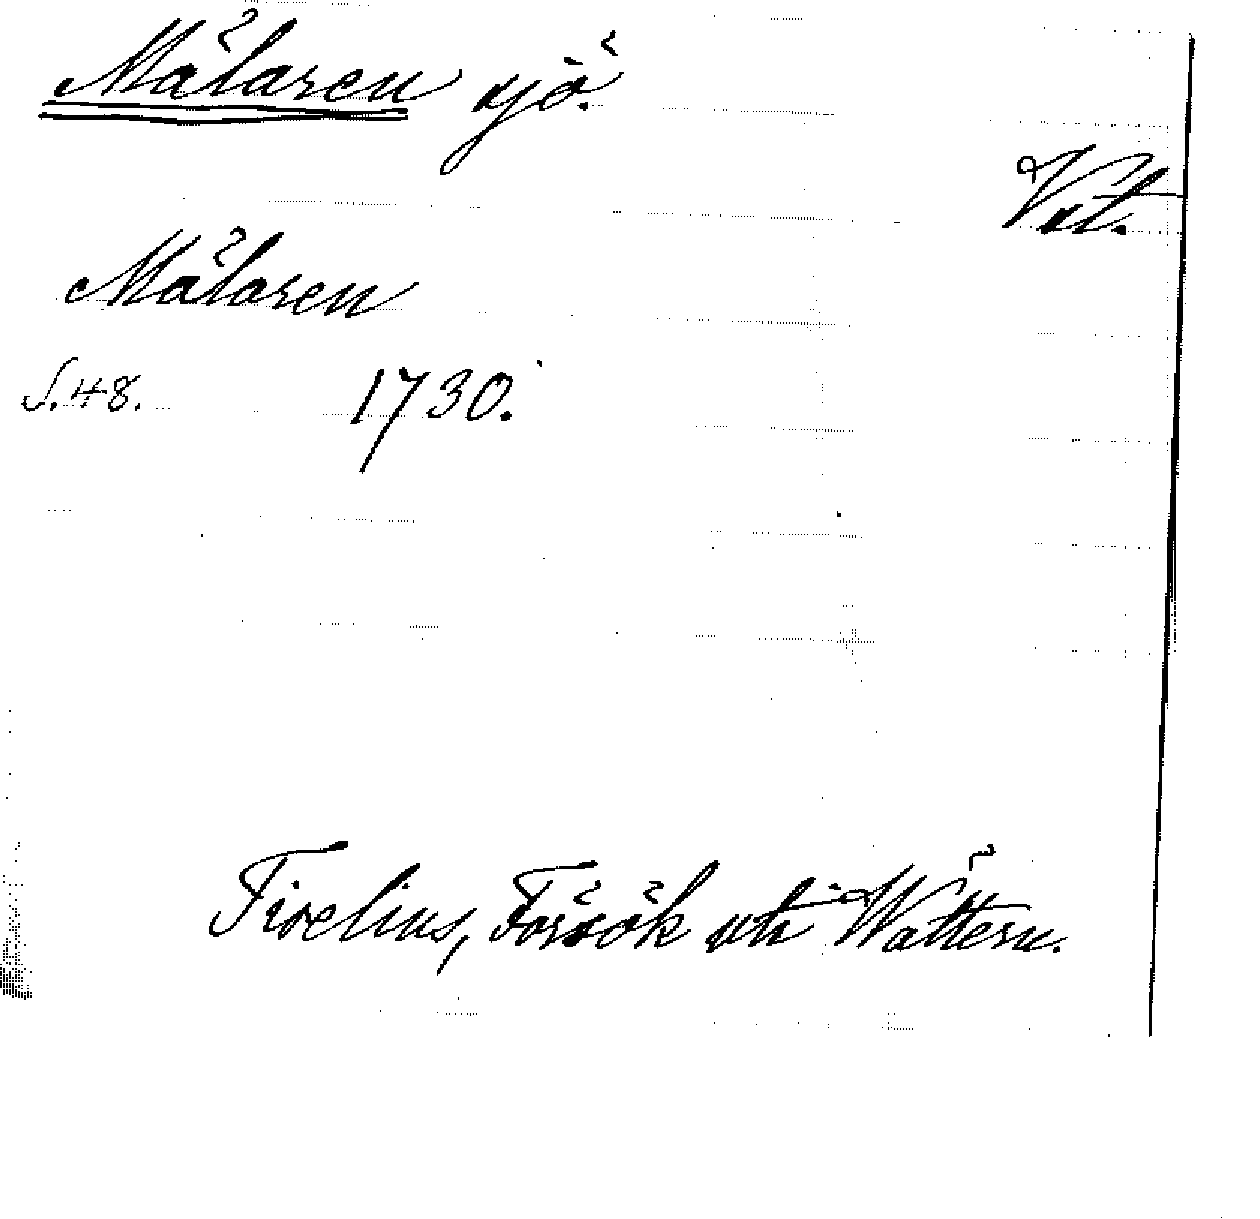 Mälaren sjö.
Vat.
Mälaren
S. 48. 1730.
Tiselius, Försök uti Wättern.